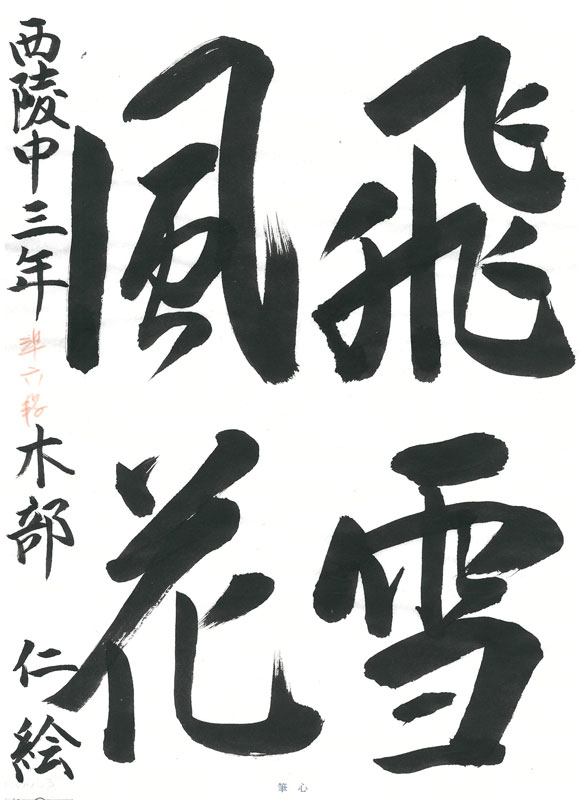 飛雪
風花
西陵中三年 準六段 木部 仁絵
筆心